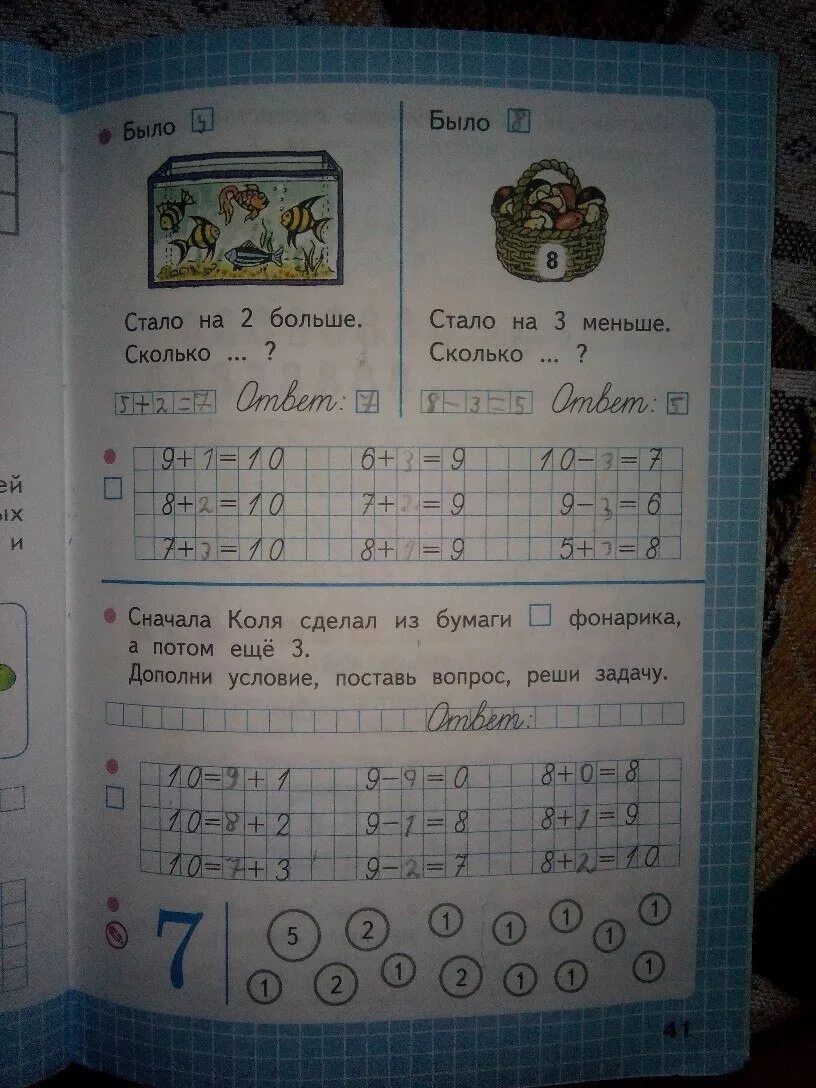 Было 5
Стало на 2 больше.
Сколько ... ?
5+2=7 Ответ: 7
Было 8
8
Стало на 3 меньше.
Сколько ... ?
8-3=5 Ответ: 5
9+1=10 6+3=9 10-3=7
8+2=10 7+ =9 9-3=6
7+3=10 8+ =9 5+3=8
Сначала Коля сделал из бумаги фонарика,
а потом ещё 3.
Дополни условие, поставь вопрос, реши задачу.
Ответ:
10=9+1 9-9=0 8+0=8
10=8+2 9-1=8 8+1=9
10=7+3 9-2=7 8+2=10
7 5 2 1 1 1 1 1
1 2 1 2 1 1 1
41
ей
ых
и